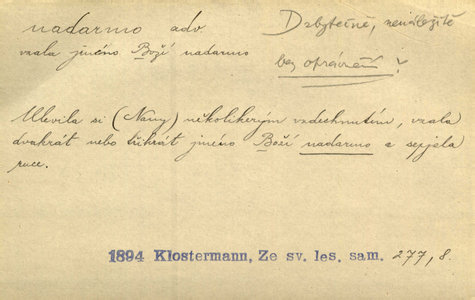 nadarmo adv.
vzala jméno Boží nadarmo
Dzbytečně, nenáležitě
bez oprávnění?
Ulevila si (Nany) několikerým vzdechnutím, vzala
dvakrát nebo třikrát jméno Boží nadarmo a sepjala
ruce.
1894 Klostermann, Ze sv. les. sam. 277, 8.